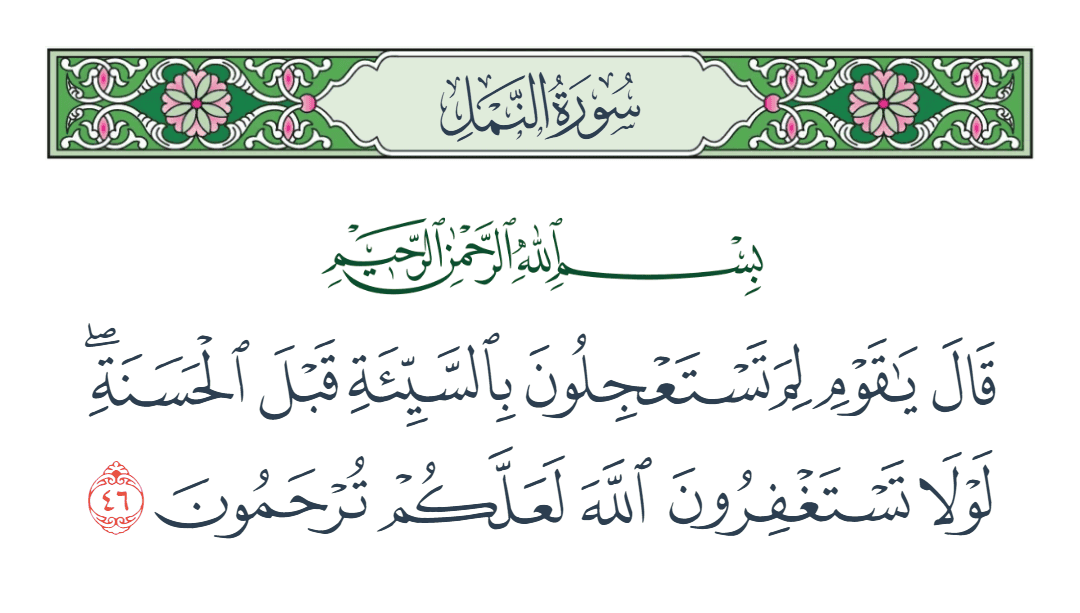 سُورَةُ النَّمْلِ
بِسْمِ ٱللَّهِ ٱلرَّحْمَٰنِ ٱلرَّحِيمِ
قَالَ يَٰقَوْمِ لِمَ تَسْتَعْجِلُونَ بِٱلسَّيِّئَةِ قَبْلَ ٱلْحَسَنَةِۖ
لَوْلَا تَسْتَغْفِرُونَ ٱللَّهَ لَعَلَّكُمْ تُرْحَمُونَ ٤٦